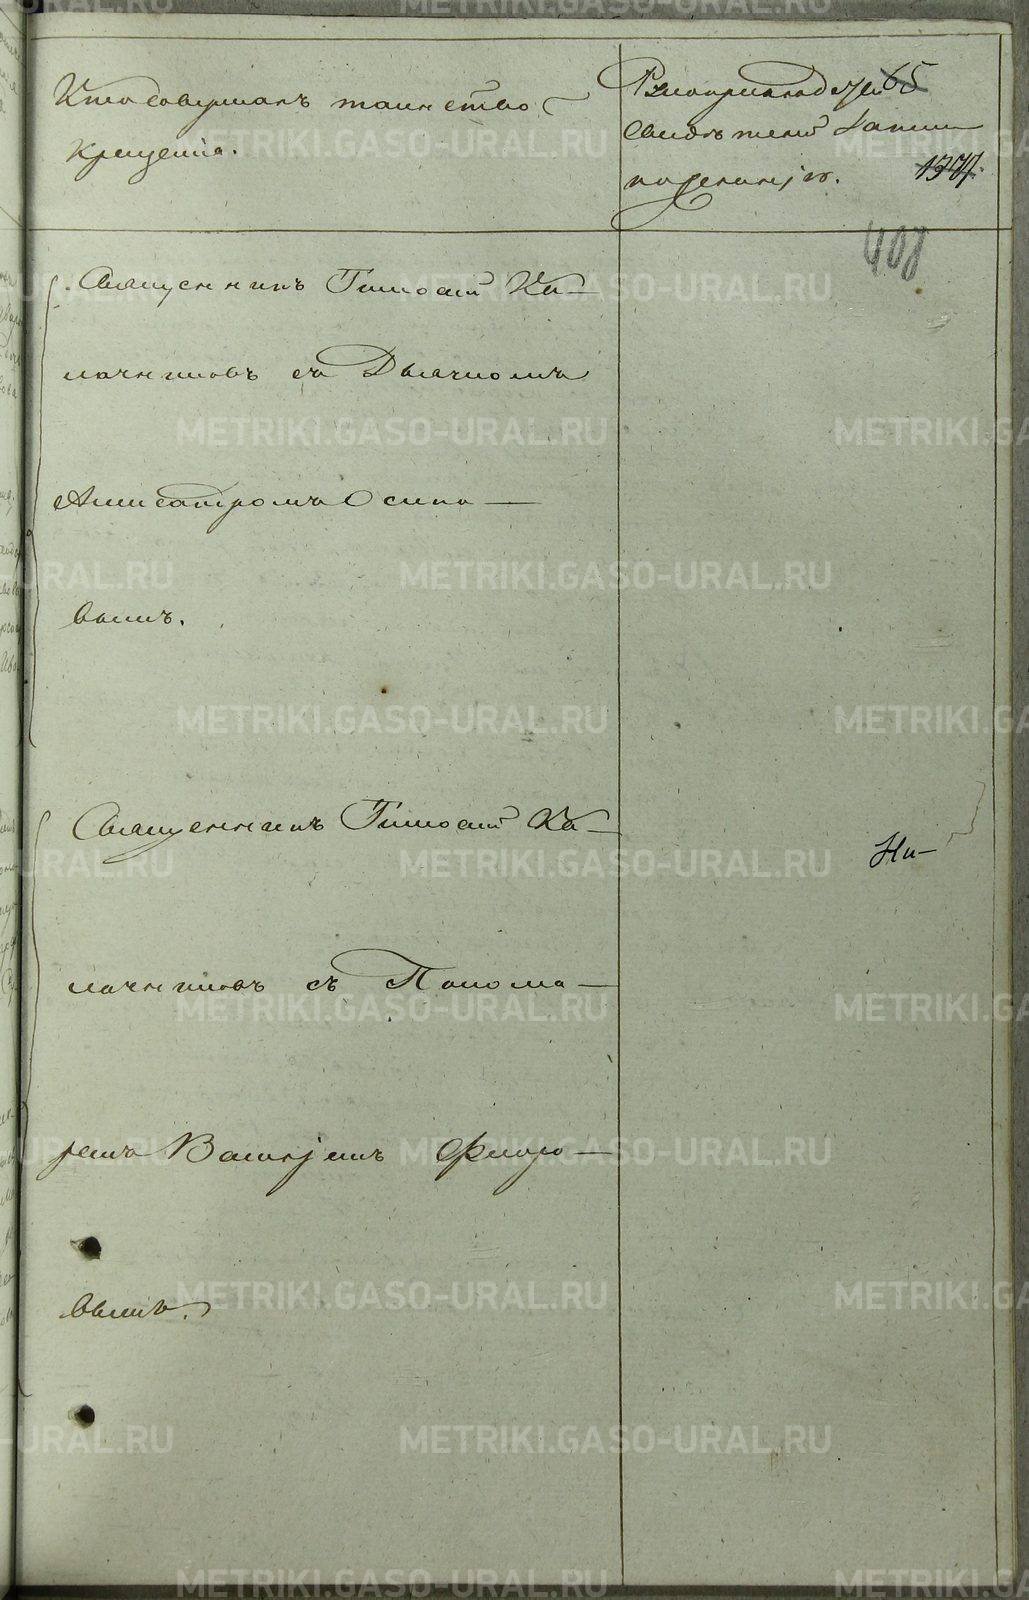 Кто совершалъ таинство
крещенія.
Рукоприкладство 65
свидѣтелей записи
по желанію.
1377.
408
Священникъ Тимофей Ка-
лачниковъ съ Дьячкомъ
Александромъ Осипо-
вымъ.
Священникъ Тимофей Ка-
лачниковъ съ Понома-
ремъ Валеріемъ Флоро-
вымъ.
Ни-
METRIKI.GASO-URAL.RU